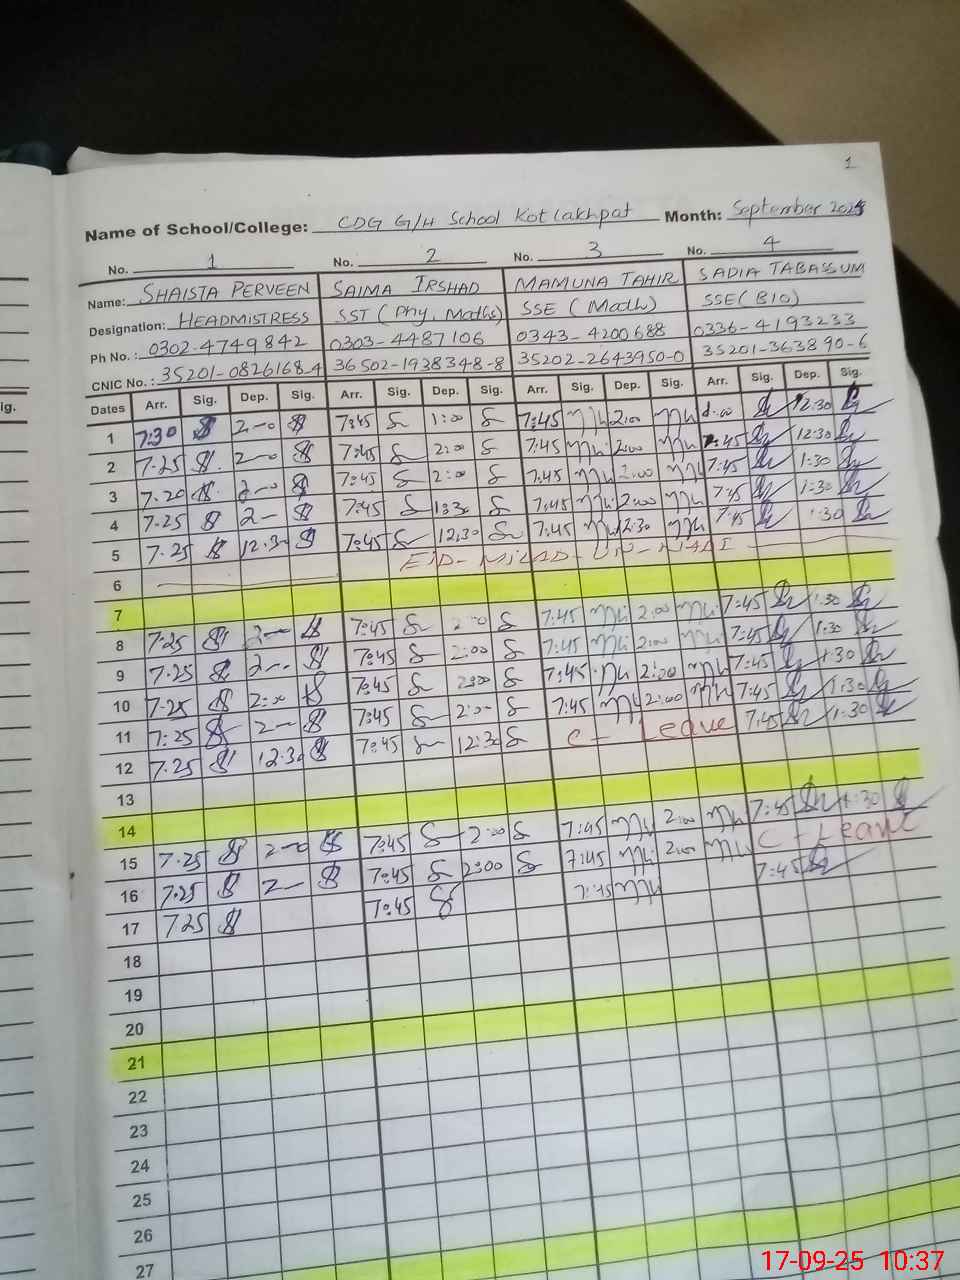 1
Name of School/College: CDG G/H School Kot Lakhpat Month: September 2025
No. 1 No. 2 No. 3 No. 4
Name: SHAISTA PERVEEN SAIMA IRSHAD MAMUNA TAHIR SADIA TABASSUM
Designation: HEADMISTRESS SST (Phy, Maths) SSE (Math) SSE (BIO)
Ph No.: 0302-4749842 0303-4487106 0343-4200688 0336-4193233
CNIC No.: 35201-0826168-4 36502-1928348-8 35202-2643950-0 35201-363890-6
ig. Dates Arr. Sig. Dep. Sig. Arr. Sig. Dep. Sig. Arr. Sig. Dep. Sig. Arr. Sig. Dep. Sig.
1 7:30 2-0 7:45 1:00 7:45 2:00 12:30
2 7.25 2-0 7:45 2:00 7:45 2:00 7:45 12:30
3 7.20 2-0 7:45 2:00 7:45 2:00 7:45 1:30
4 7.25 2- 7:45 1:30 7:45 2:00 7:45 1:30
5 7.25 12.30 7:45 12.30 7:45 12:30 7:45 1:30
6 EID-MILAD-UN-NABI
7
8 7.25 2- 7:45 7:45 2:00 7:45 1:30
9 7.25 2-- 7:45 2:00 7:45 2:00 7:45 1:30
10 7.25 2:00 7:45 2:00 7:45 2:00 7:45 1:30
11 7:25 2- 7:45 2:00 7:45 2:00 7:45 1:30
12 7.25 12.30 7:45 12:30 C- Leave 7:45 1:30
13
14
15 7.25 2-0 7:45 2:00 7:45 2:00 7:45 1:30
16 7.25 2- 7:45 2:00 7:45 2:00 C- Leave
17 7.25 7:45 7:45 7:45
18
19
20
21
22
23
24
25
26
27
17-09-25 10:37